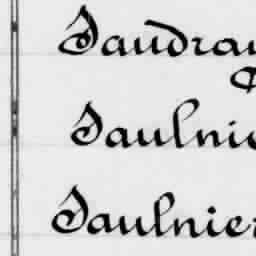 Saudrau
Saulnie
Saulnier